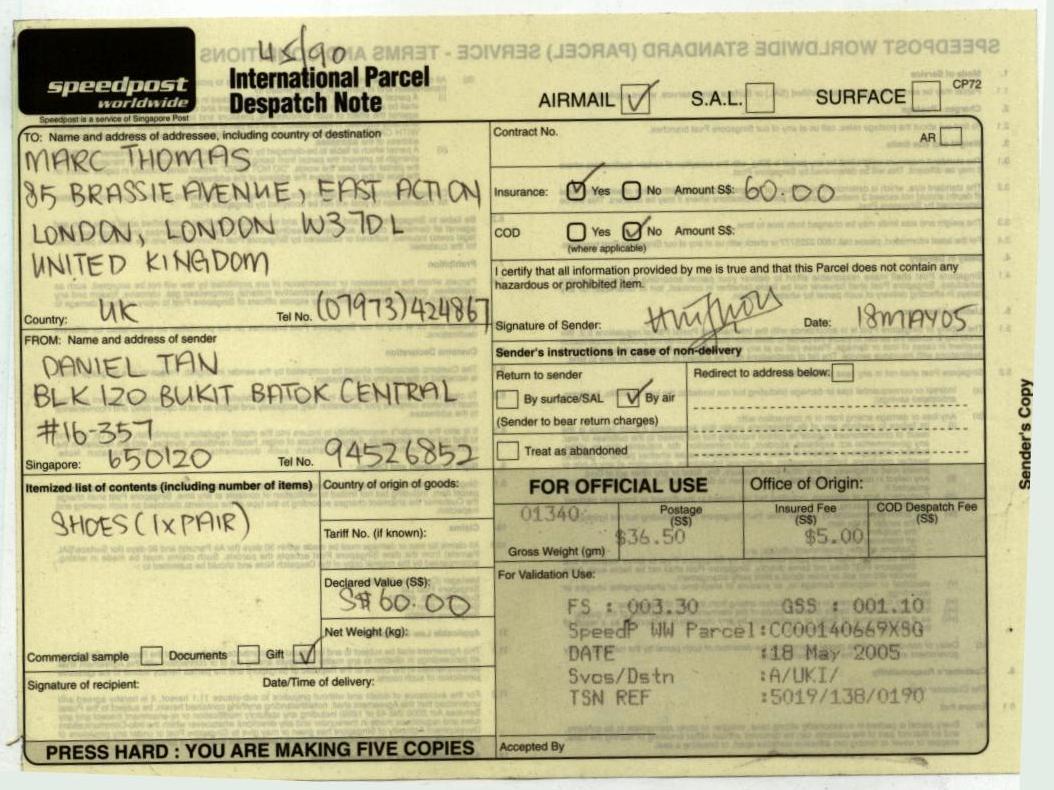 45/90
speedpost
worldwide
Speedpost is a service of Singapore Post
International Parcel
Despatch Note
AIRMAIL
S.A.L.
SURFACE
CP72
TO: Name and address of addressee, including country of destination
MARC THOMAS
85 BRASSIE AVENUE, EAST ACTION
LONDON, LONDON W3 7DL
UNITED KINGDOM
Country: UK Tel No. (07973)424867
Contract No.
AR
Insurance: Yes No Amount S$: 60.00
COD Yes No Amount S$:
(where applicable)
I certify that all information provided by me is true and that this Parcel does not contain any
hazardous or prohibited item.
Signature of Sender: Date: 18MAY05
FROM: Name and address of sender
DANIEL TAN
BLK 120 BUKIT BATOK CENTRAL
#16-357
Singapore: 650120 Tel No. 94526852
Sender's instructions in case of non-delivery
Return to sender
By surface/SAL By air
(Sender to bear return charges)
Treat as abandoned
Redirect to address below:
Itemized list of contents (including number of items)
SHOES (1xPAIR)
Commercial sample Documents Gift
Country of origin of goods:
Tariff No. (if known):
Declared Value (S$):
S$60.00
Net Weight (kg):
Signature of recipient: Date/Time of delivery:
PRESS HARD : YOU ARE MAKING FIVE COPIES
FOR OFFICIAL USE
Office of Origin:
01340
Gross Weight (gm)
Postage
(S$)
$36.50
Insured Fee
(S$)
$5.00
COD Despatch Fee
(S$)
For Validation Use:
FS : 003.30 GSS : 001.10
SpeedP WW Parcel:CC00140669XSG
DATE :18 May 2005
Svcs/Dstn :A/UKI/
TSN REF :5019/138/0190
Accepted By
Sender's Copy